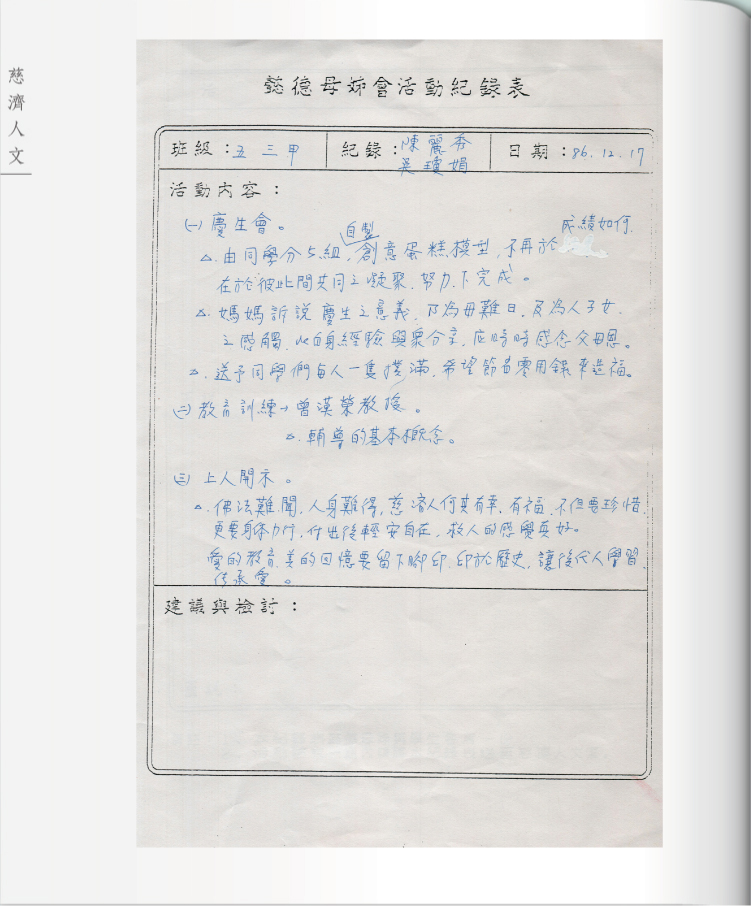 慈濟人文
懿德母姊會活動紀錄表
班級：五三甲 紀錄：陳麗秀 吳瓊娟 日期：86.12.17
活動內容：
(一) 慶生會。
△. 由同學分5組，自製創意蛋糕模型，不再於成績如何，
在於彼此間共同之凝聚、努力下完成。
△. 媽媽訴說慶生之意義，乃為母難日，及為人子女
之感觸，以自身經驗與眾分享，應時時感念父母恩。
△. 送予同學們每人一隻撲滿，希望節省零用錢來造福。
(二) 教育訓練→曾漢榮教授。
△. 輔導的基本概念。
(三) 上人開示。
△. 佛法難聞，人身難得，慈濟人何其有幸，有福，不但要珍惜
更要身体力行，付出後輕安自在，救人的感覺真好。
愛的教育，美的回憶要留下腳印，印於歷史，讓後代人學習
傳承愛。
建議與檢討：